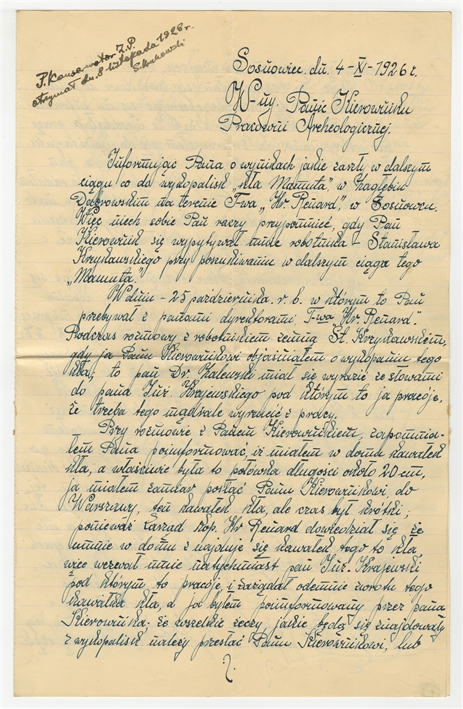 P. Konserwator Z.P.
otrzymał dn. 8 listopada 1926 r.
Sosnowiec. dn. 4-XI-1926 r.
W-ny. Panie Kierowniku
Pracowni Archeologicznej
Informując Pana o wynikach jakie zaszły w dalszym
ciągu co do wykopalisk „kła Mamuta", w Zagłębiu
Dąbrowskiem na terenie T-wa „Hr. Renard", w Sosnowcu.
Więc niech sobie Pan raczy przypomnieć, gdy Pan
Kierownik się wypytywał mnie robotnika - Stanisława
Krzykawskiego przy poszukiwaniu w dalszym ciągu tego
„Mamuta."
W dniu - 25 października r. b. w którym to Pan
przebywał z panami dyrektorami, T-wa „Hr. Renard".
Podczas rozmowy z robotnikiem ze mną St. Krzykawskim,
gdy ja Panu Kierownikowi objaśniałem o wykopaniu tego
kła, to pan Dr. Zalewski miał się wyrazić ze słowami
do pana Inż. Krajewskiego pod którym to ja pracuję,
że trzeba tego mądrale wyrzucić z pracy.
Przy rozmowie z Panem Kierownikiem, zapomnia-
łem Pana poinformować, iż miałem w domu kawałek
kła, a właściwie była to połówka długości około 20 cm,
ja miałem zamiar posłać Panu Kierownikowi do
Warszawy, ten kawałek kła, ale czas był krótki;
ponieważ zarząd kop. Hr Renard dowiedział się że
u mnie w domu znajduje się kawałek tego to kła,
więc wezwał mnie natychmiast pan Inż. Krajewski
pod którym to pracuję i zarządał odemnie zwrotu tego
kawałka kła, a ja byłem poinformowany przez pana
Kierownika, że wszelkie rzeczy, jakie będą się znajdowały
z wykopalisk należy przesłać Panu Kierownikowi, lub